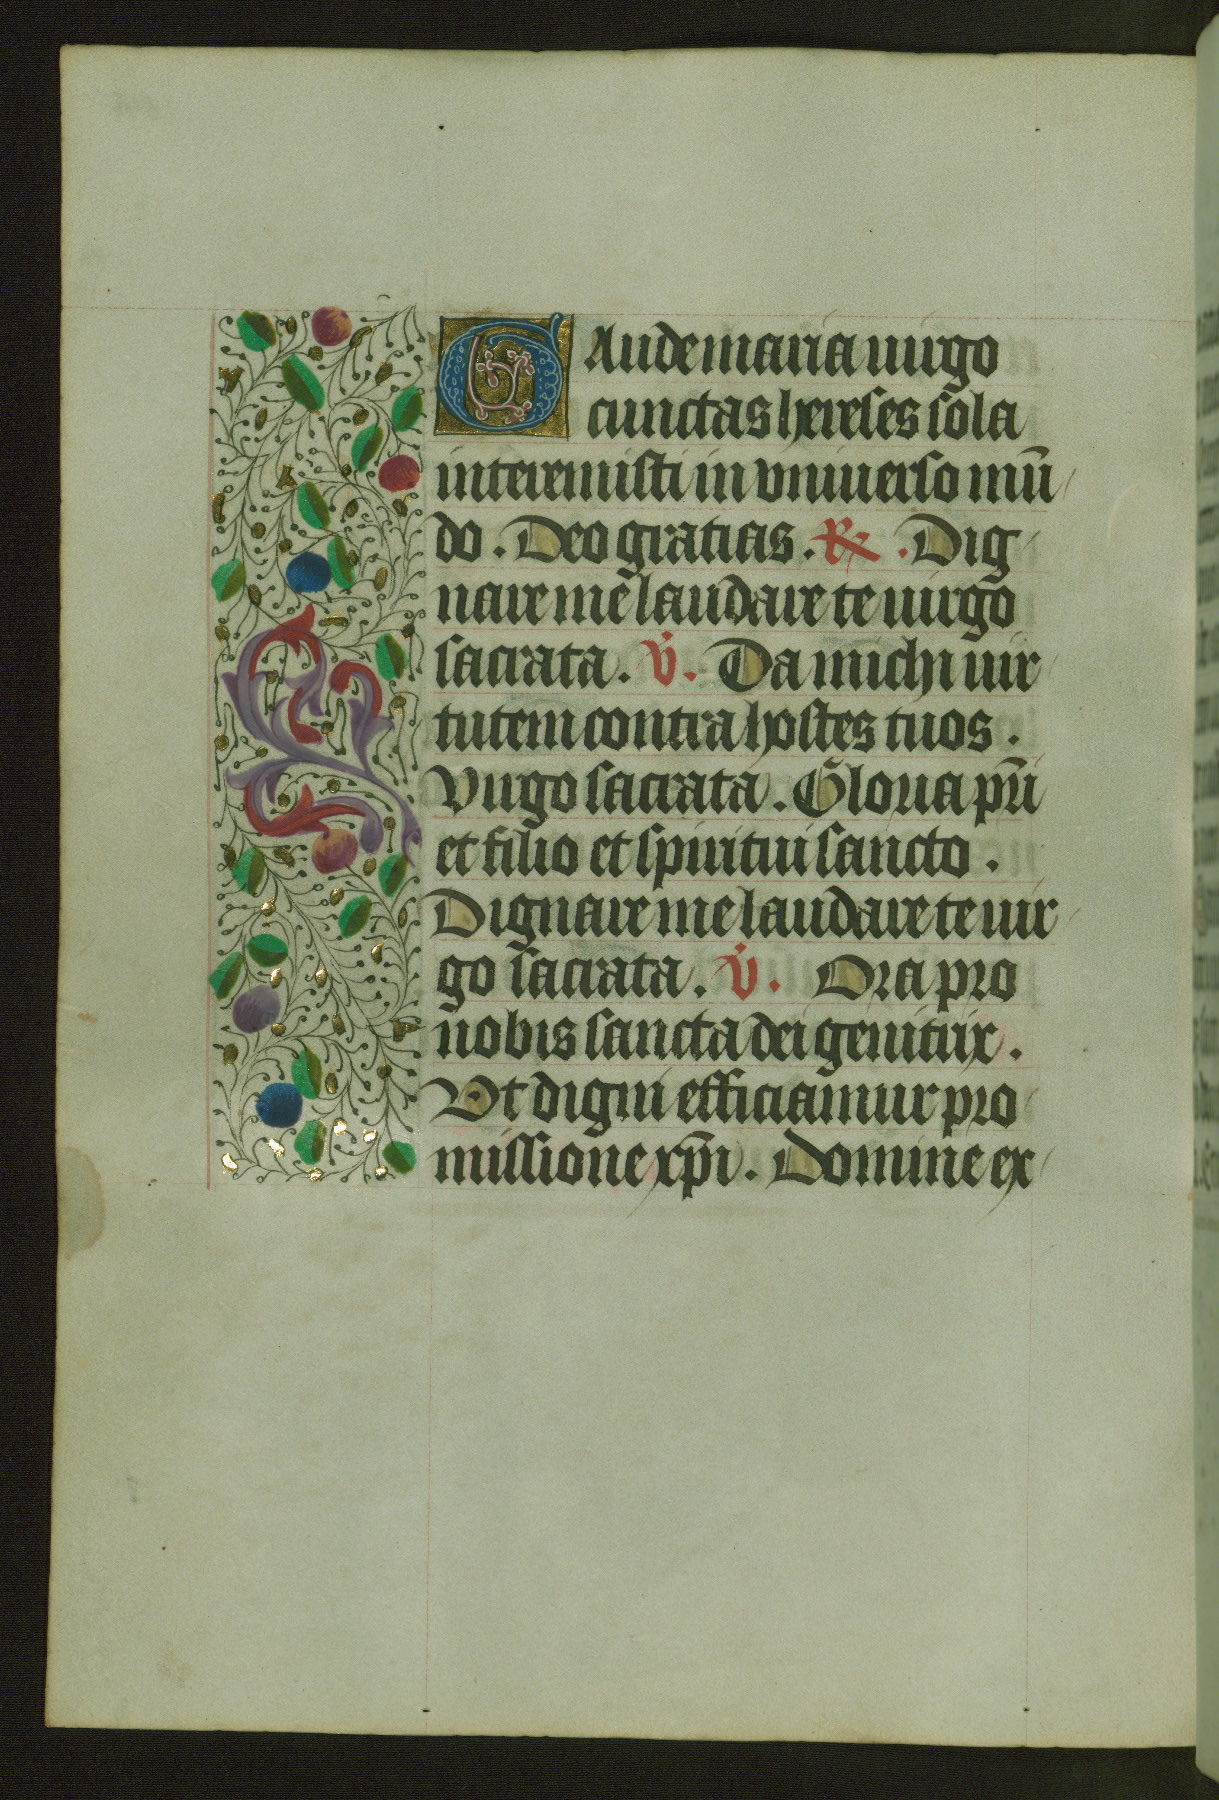 Gaude maria uirgo
cunctas hereses sola
interemisti in vniuerso mū
do. Deo gratias. ℟. Dig
nare me laudare te uirgo
sacrata. v̇. Da michi uir
tutem contra hostes tuos.
Virgo sacrata. Gloria pr̄i
et filio et spiritui sancto.
Dignare me laudare te uir
go sacrata. v̇. Ora pro
nobis sancta dei genitrix.
Vt digni efficiamur pro
missione xp̄i. Domine ex